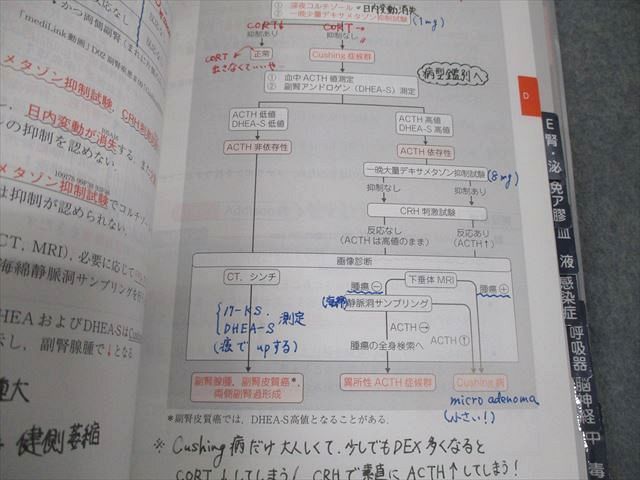 ① 深夜コルチゾール → 日内変動消失
② 一晩少量デキサメタゾン抑制試験 (1mg)
CORT↓
抑制あり
CORT→
抑制なし
正常
Cushing 症候群
CORT
出さなくていいや…
① 血中 ACTH 値測定
② 副腎アンドロゲン（DHEA-S）測定
病型鑑別へ
ACTH 低値
DHEA-S 低値
ACTH 高値
DHEA-S 高値
ACTH 非依存性
ACTH 依存性
一晩大量デキサメタゾン抑制試験 (8mg)
抑制なし
抑制あり
CRH 刺激試験
反応なし
（ACTH は高値のまま）
反応あり
（ACTH↑）
画像診断
CT，シンチ
下垂体 MRI
腫瘍 ⊖
腫瘍 ⊕
17-KS.
DHEA-S 測定
(癌で upする)
静脈洞サンプリング
ACTH →
腫瘍の全身検索へ
ACTH ↑
副腎腺腫，副腎皮質癌*，
両側副腎過形成
異所性 ACTH 症候群
Cushing 病
micro adenoma
(小さい!)
*副腎皮質癌では，DHEA-S高値となることがある．
※ Cushing 病だけ大人しくて、少しでもDEX多くなると
CORT ↓ してしまう! CRHで素直に ACTH↑してしまう!
「mediLink 動画」D02 副腎疾患
メタゾン抑制試験，CRH
日内変動が消失する．また
の抑制を認めない．
メタゾン抑制試験でコルチゾー
は抑制が認められない．
CT，MRI），必要に応じて
海綿静脈洞サンプリングを
HEA およびDHEA-SはCus
示し，副腎腺腫で↓となる．
健側萎縮
D
E
腎・泌
免ア膠
血 液
感染症
呼吸器
脳神経
中毒